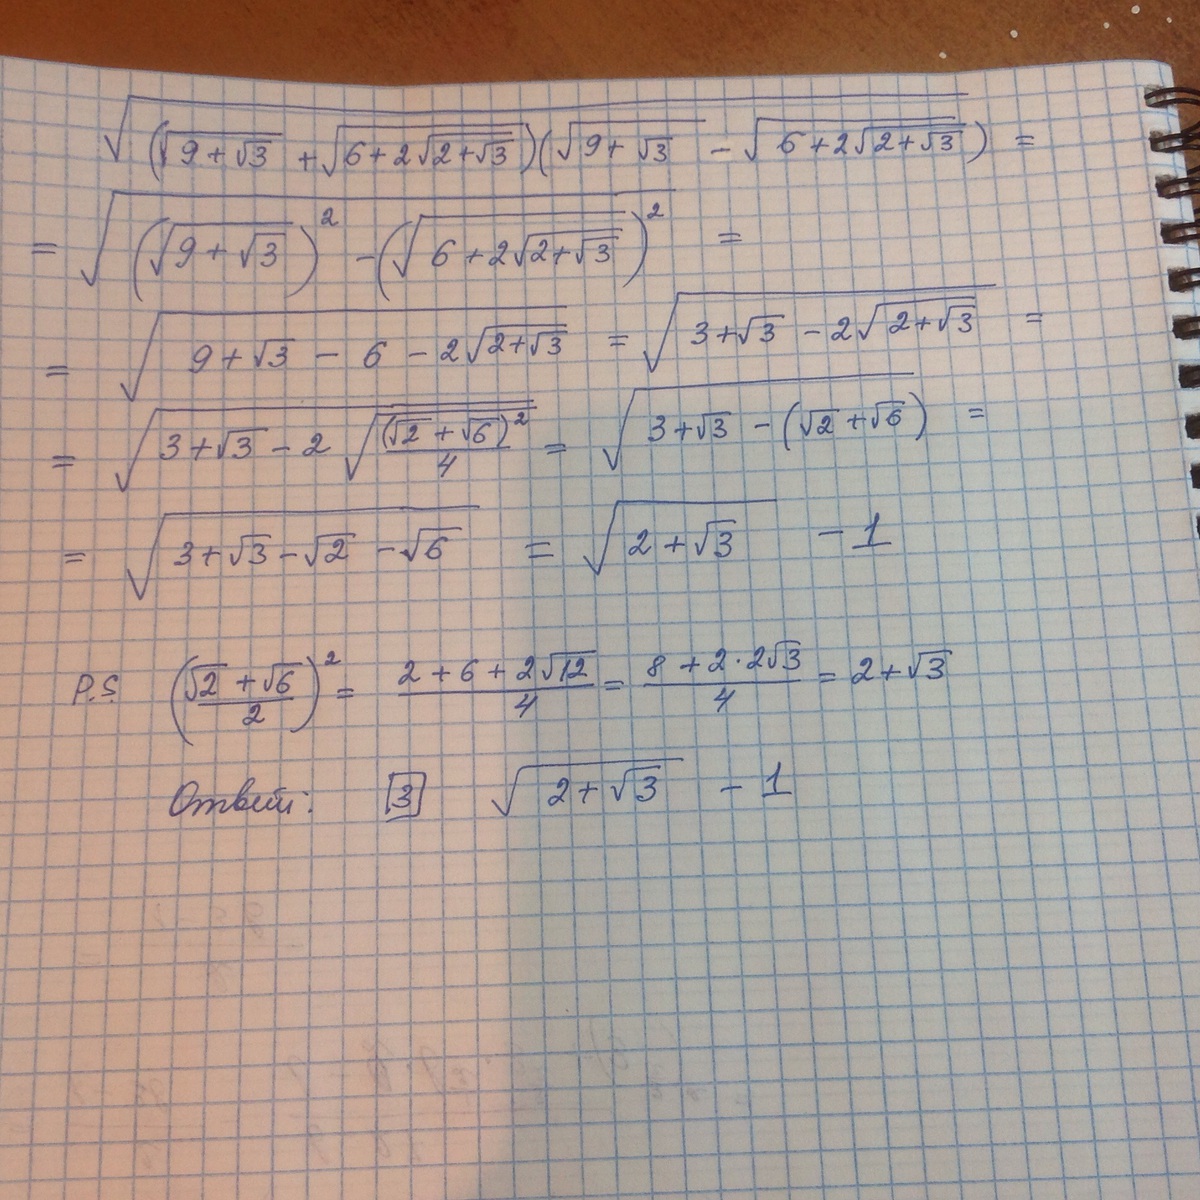 √((√(9+√3) + √(6+2√(2+√3)))(√(9+√3) - √(6+2√(2+√3)))) =
= √((√(9+√3))² - (√(6+2√(2+√3)))²) =
= √(9+√3 - 6 - 2√(2+√3)) = √(3+√3 - 2√(2+√3)) =
= √(3+√3 - 2√((√2+√6)²/4)) = √(3+√3 - (√2+√6)) =
= √(3+√3-√2-√6) = √(2+√3) - 1
P.S. ((√2+√6)/2)² = (2+6+2√12)/4 = (8+2·2√3)/4 = 2+√3
Ответ: [3] √(2+√3) - 1